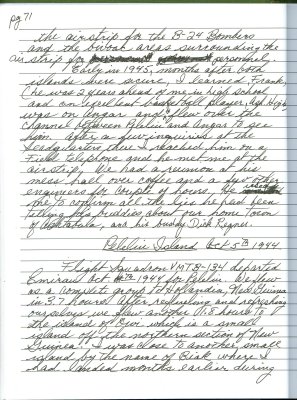 pg 71
the airstrip for the B-24 Bombers
and the bivouac areas surrounding the
air strip for personnel.
Early in 1945, months after both
islands were secure, I learned Frank,
(he was 2 years ahead of me in high school
and an excellent basketball player,
was on Angaur and flew over the
channel between Peleliu and Angaur to see
him. After a few inquiries at the
Headquarters there I reached him on a
Field telephone and he met me at the
airstrip. We had a reunion at his
mess hall over coffee and a few other
engineers for couple of hours. He used
me to confirm all the lies he had been
telling his buddies about our home town
of Ashtabula, and his buddy Dick Regner.
Peleliu Island Oct 5th 1944
Flight Squadron VMTB-134 departed
Emirau Oct 1944 for Peleliu. We flew
as a complete group to Hollandia, New Guinea
in 3.7 hours. After refueling and refreshing
ourselves we flew another 1.8 hours to
the island of Owi which is a small
island off the northern section of New
Guinea. I was close to another small
island by the name of Biak where I
had landed months earlier during